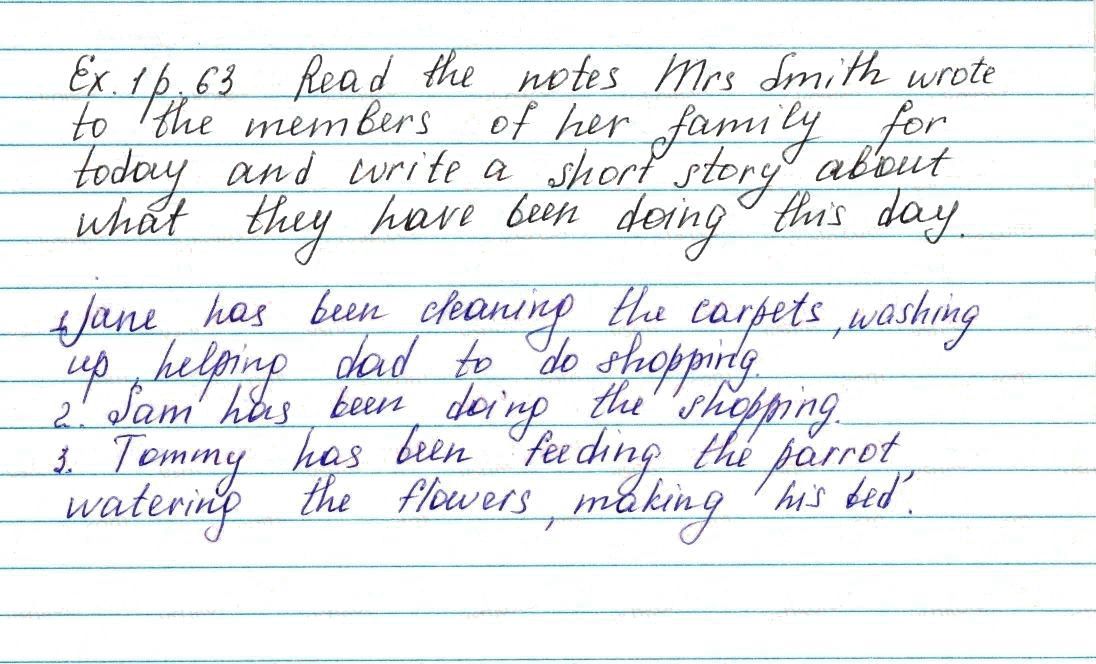 Ex. 1 p. 63 Read the notes Mrs Smith wrote
to the members of her family for
today and write a short story about
what they have been doing this day.
1. Jane has been cleaning the carpets, washing
up, helping dad to do shopping.
2. Sam has been doing the shopping.
3. Tommy has been feeding the parrot,
watering the flowers, making his bed.